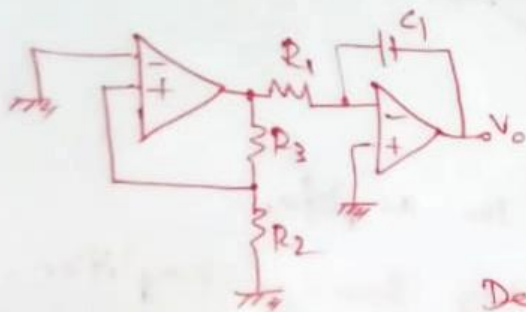 C1
R1
-
+
-
+
Vo
R3
R2
De